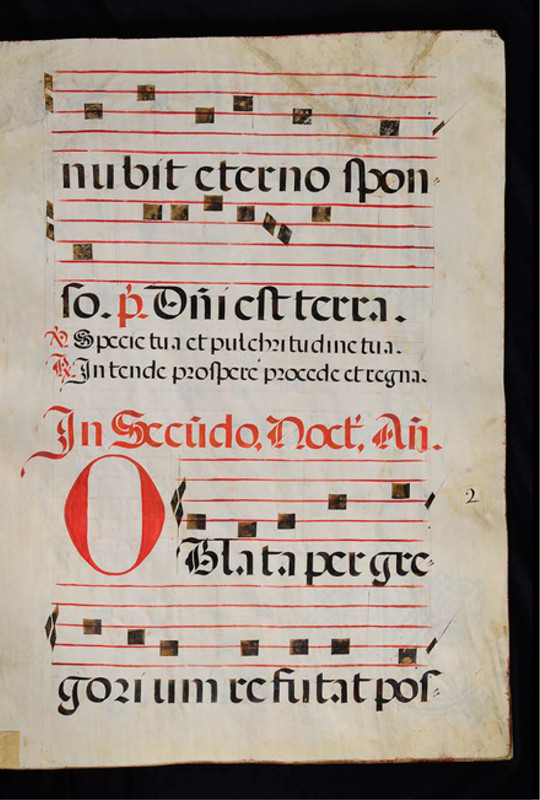 nubit eterno spon-
so. p̃. Dñi est terra.
℣ Specie tua et pulchritudine tua.
℟ Intende prospere procede et regna.
In Secũdo, Noct̃, Añ.
OBlata per gre-
2
gorium refutat pos-